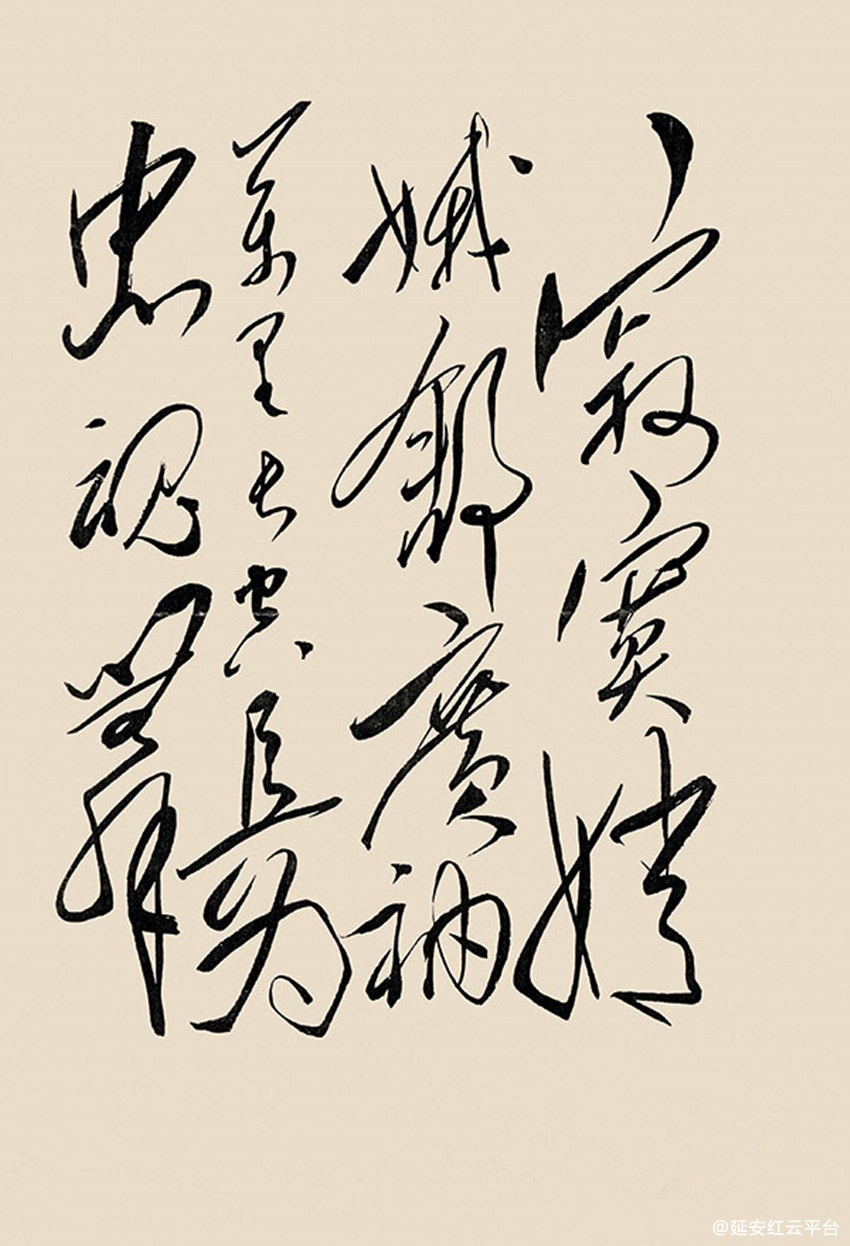 寂寞嫦
娥舒廣袖
萬里長空且為
忠魂舞
@延安红云平台